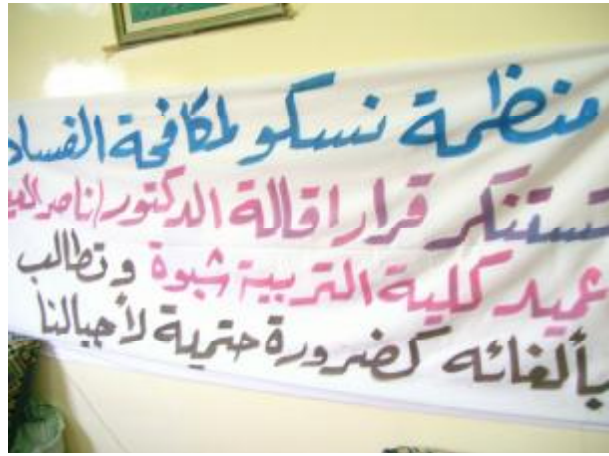 منظمة نسكو لمكافحة الفساد
تستنكر قرار اقالة الدكتور/ناصر
عميد كلية التربية شبوة وتطالب
بألغائه كضرورة حتمية لأجيالنا